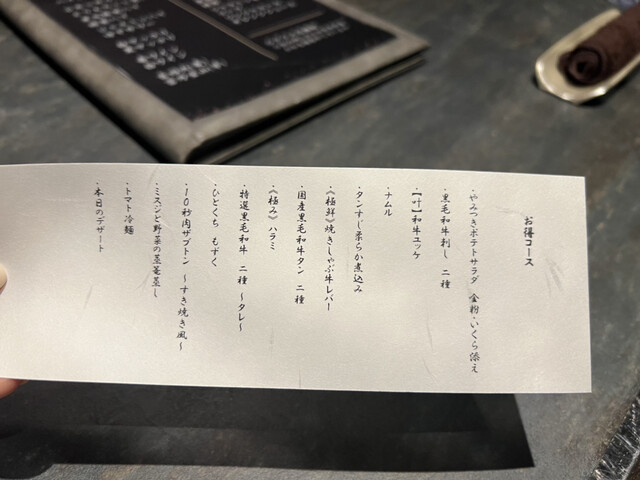 お得コース
・やみつきポテトサラダ 金粉・いくら添え
・黒毛和牛刺し 二種
・【叶】和牛ユッケ
・ナムル
・タンすじ柔らか煮込み
・《極鮮》焼きしゃぶ牛レバー
・国産黒毛和牛タン 二種
・《極み》ハラミ
・特選黒毛和牛 二種 〜タレ〜
・ひとくち もずく
・10秒肉ザブトン 〜すき焼き風〜
・ミスジと野菜の蒸篭蒸し
・トマト冷麺
・本日のデザート